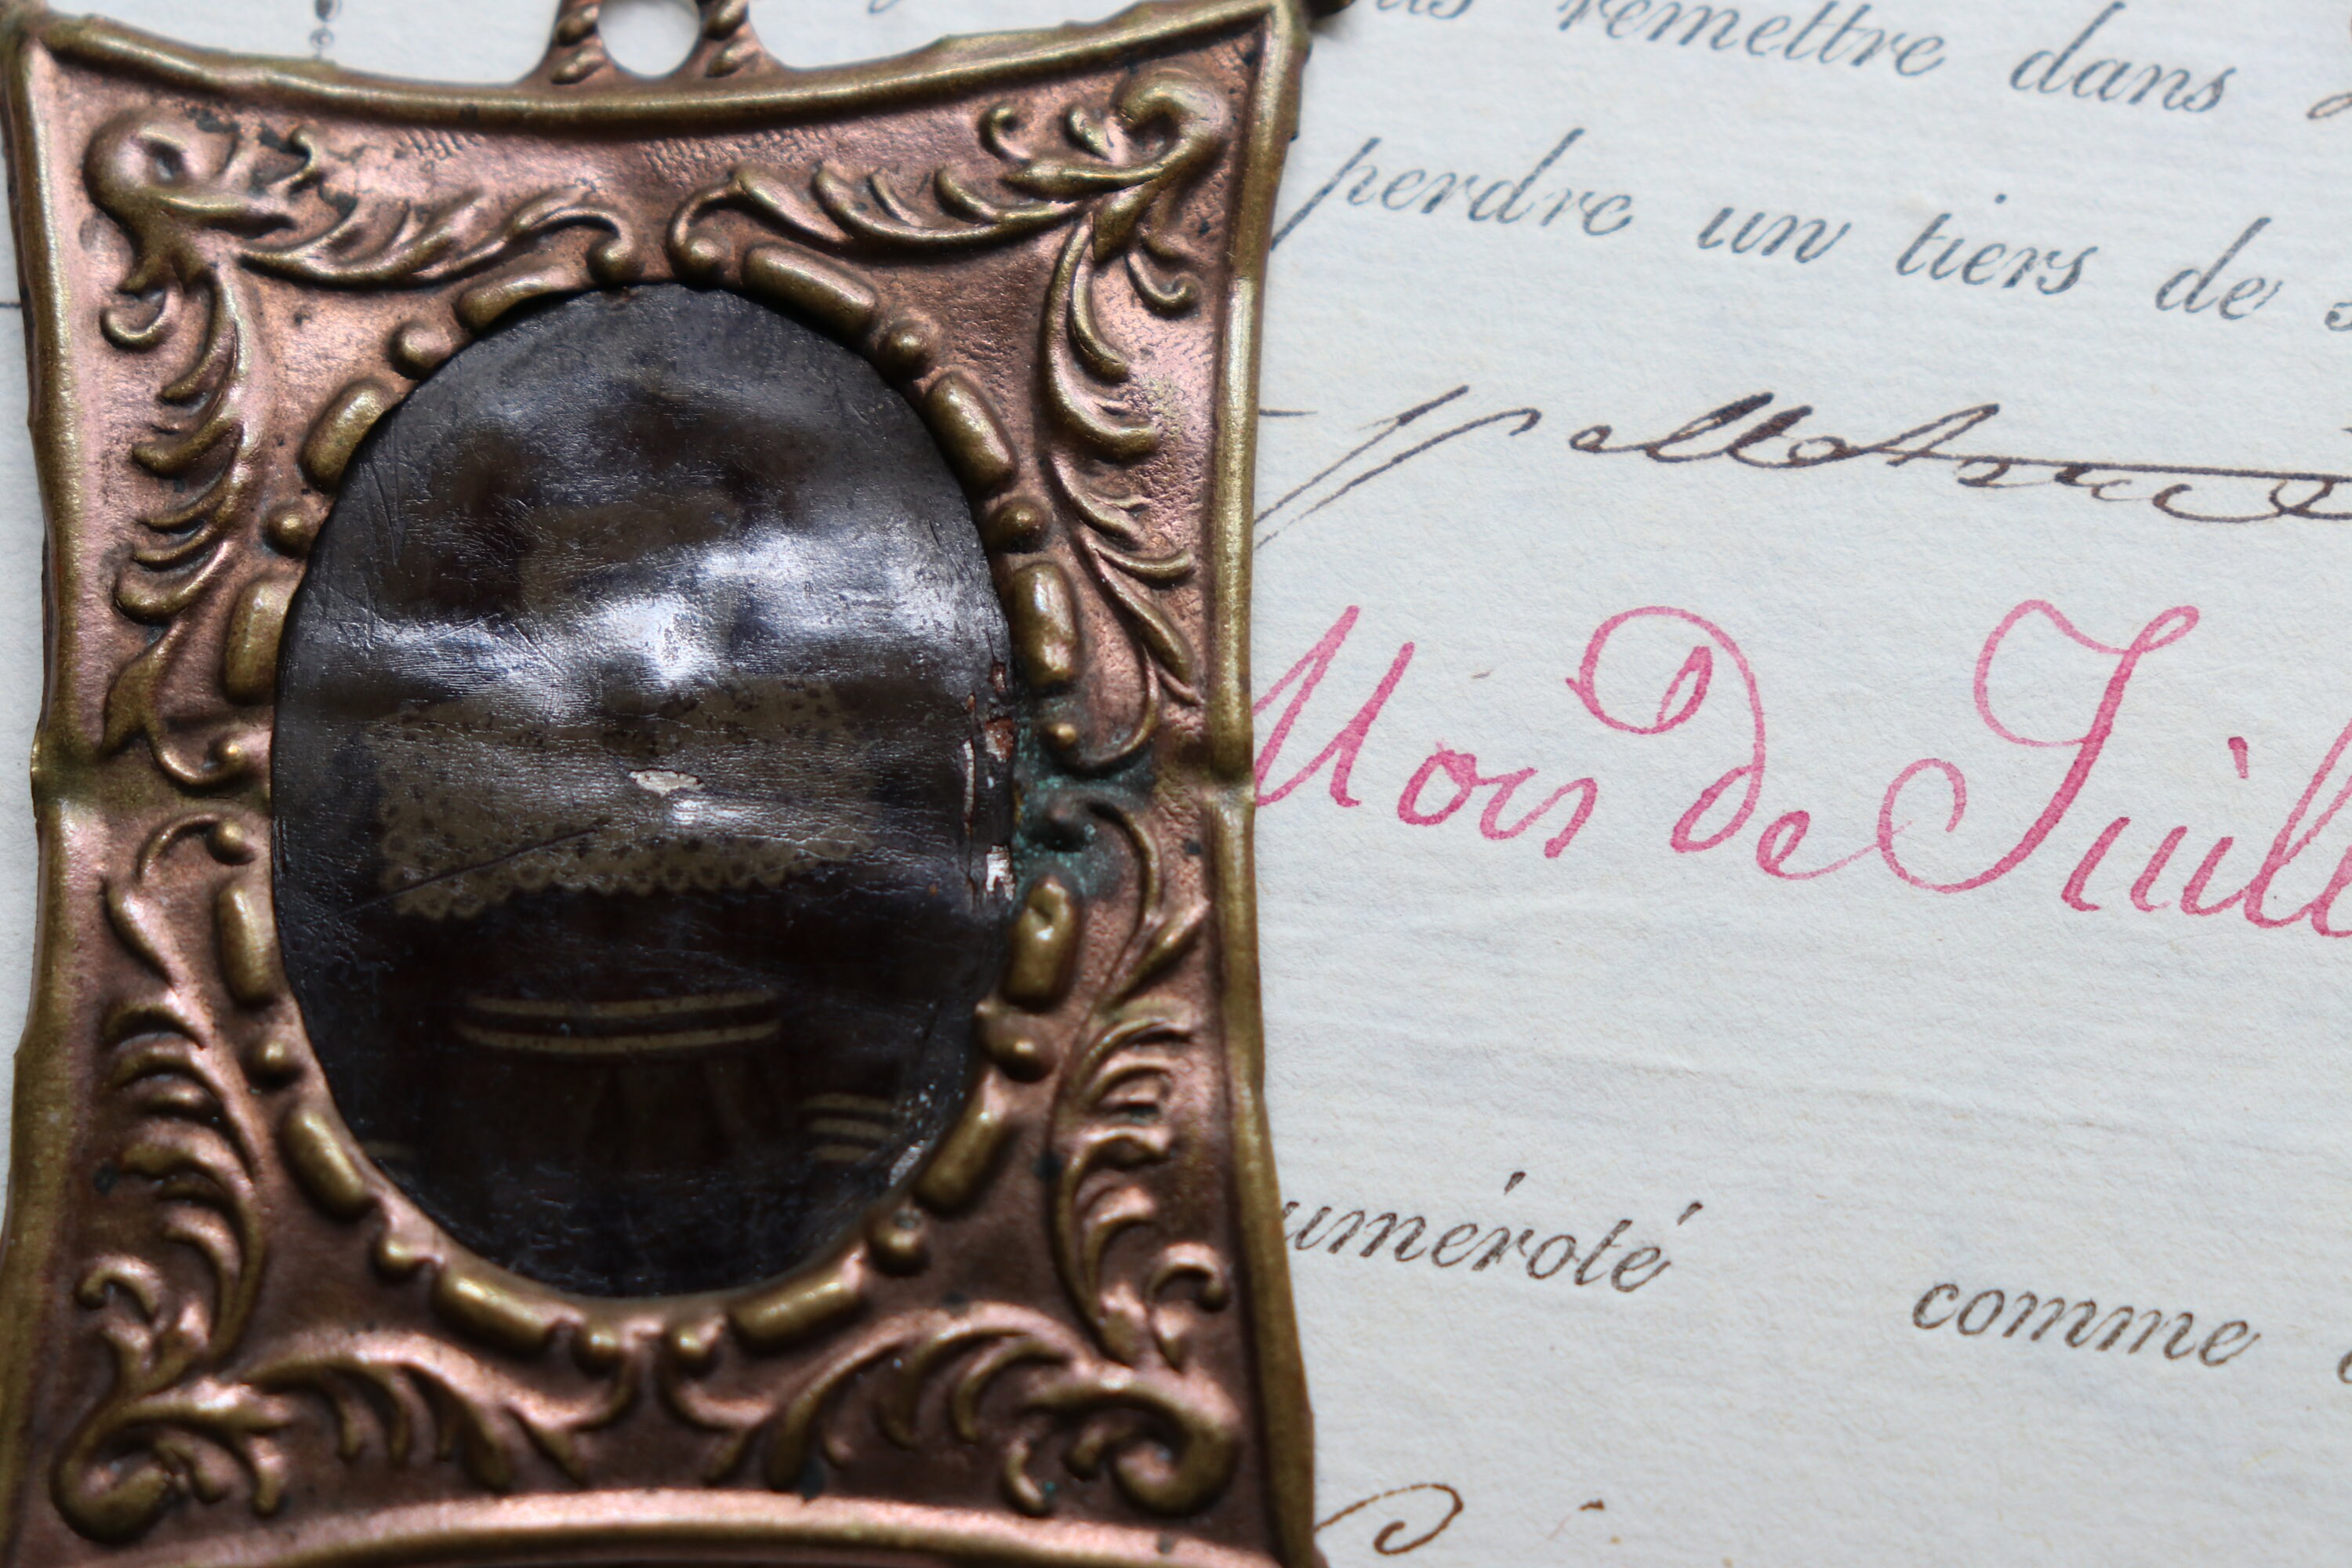 remettre dans
perdre un tiers de
Mois de Juill
uméroté comme